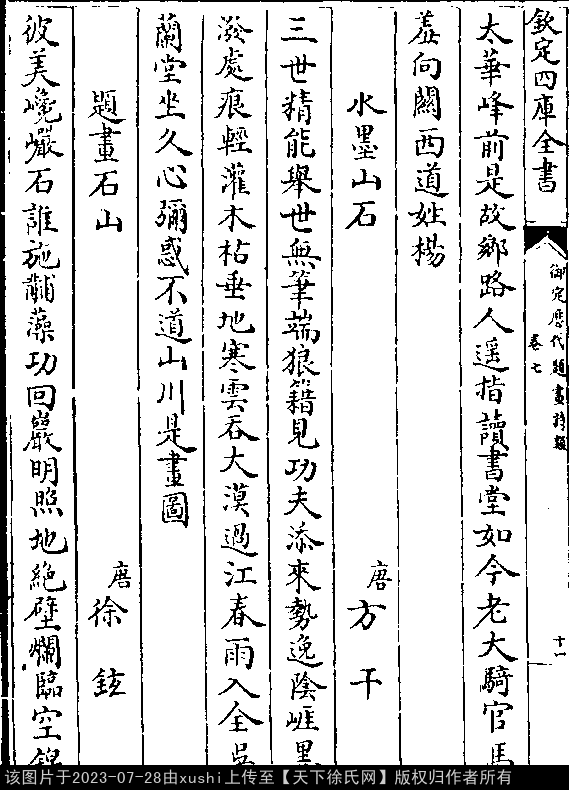 欽定四庫全書
御定歷代題畫詩類
卷七
十一
太華峰前是故鄉路人遥指讀書堂如今老大騎官馬
羞向關西道姓楊
水墨山石
唐方干
三世精能舉世無筆端狼籍見功夫添來勢逸陰崖黑
潑處痕輕灌木枯垂地寒雲吞大漠過江春雨入全吳
蘭堂坐久心彌惑不道山川是畫圖
題畫石山
唐徐鉉
彼美巉巗石誰施黼藻功回巖明照地絶壁爛臨空錦
该图片于2023-07-28由xushi上传至【天下徐氏网】版权归作者所有